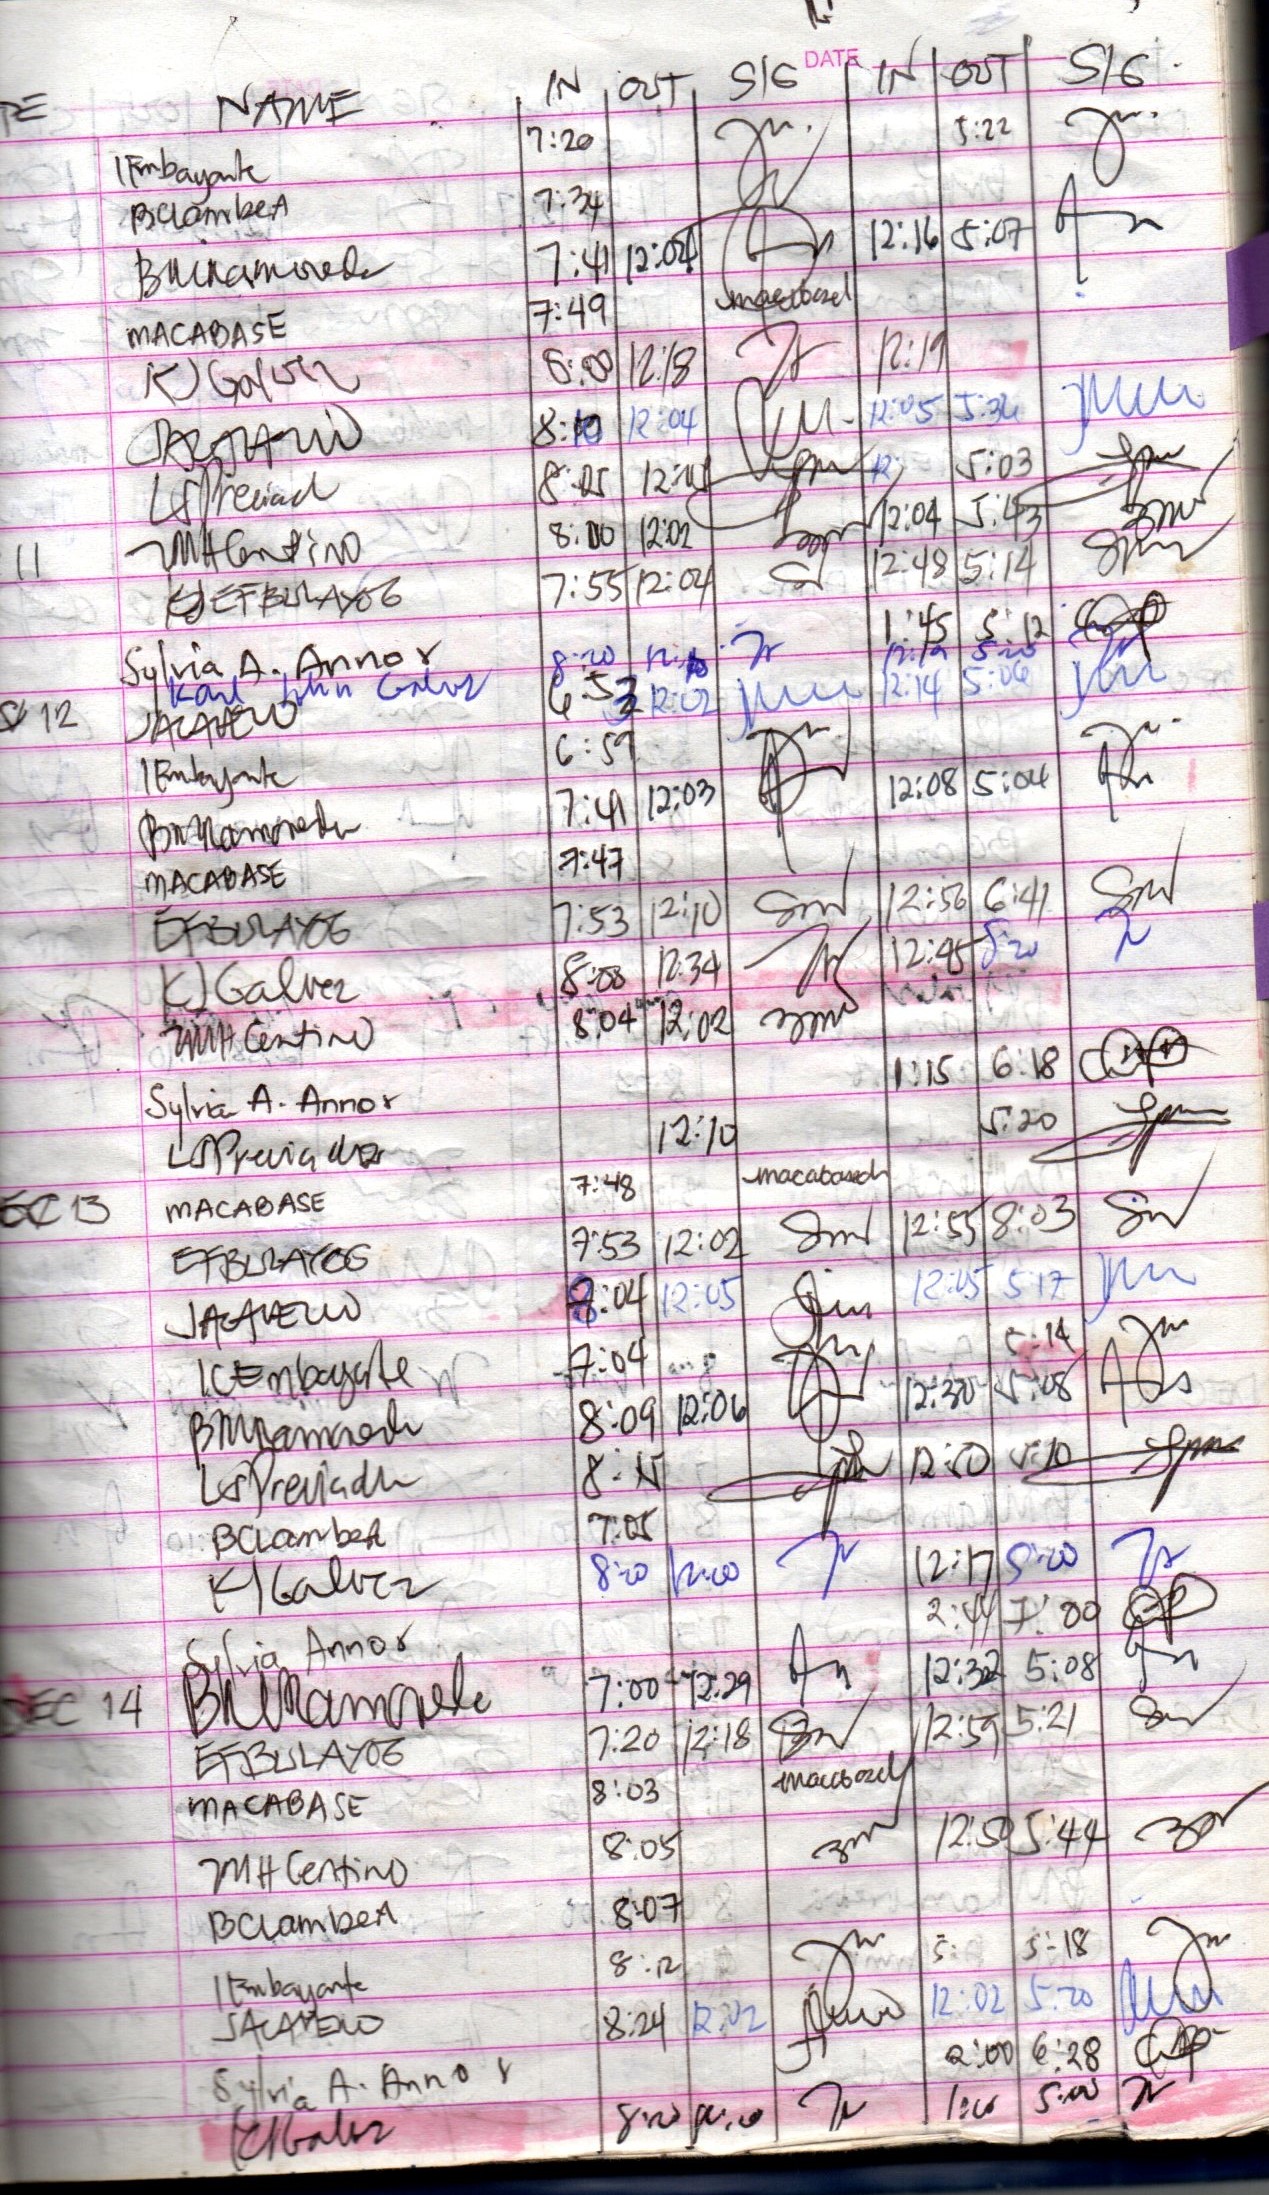 DATE
NAME IN OUT SIG IN OUT SIG
IEmbayante 7:20 5:22
BClambeA 7:34
BNMamorede 7:41 12:04 12:16 5:07
MACABASE 7:49 macabased
KJ Galvez 8:00 12:18 12:19
8:10 12:04 12:05 5:36
LSPreviad 8:05 12:01 12: 5:03
11 MHCentino 8:00 12:02 12:04 5:43
EFBULAYOG 7:55 12:04 12:48 5:14
Sylvia A. Annor 1:45 5:12
Karl John Galvez 8:20 12:19 5:20
12 JACAYENO 6:53 12:02 12:14 5:06
IEmbayante 6:59
BNMamorede 7:41 12:03 12:08 5:04
MACABASE 7:47
EFBULAYOG 7:53 12:10 12:56 6:41
KJ Galvez 8:08 12:34 12:45 5:20
MH Centino 8:04 12:02
Sylvia A. Annor 1:15 6:18
LSPreviados 12:10 5:20
EC 13 MACABASE 7:48 macabased
EFBULAYOG 7:53 12:02 12:55 8:03
JACAYENO 8:04 12:05 12:05 5:17
ICEmbayante 7:04 5:14
BNMamorede 8:09 12:06 12:30 5:08
LSPreviado 8:15 12:50 5:10
BClambeA 7:05
KJ Galvez 8:20 12:00 12:17 5:20
Sylvia Annor 2:44 7:00
DEC 14 BNMamorede 7:00 12:29 12:32 5:08
EFBULAYOG 7:20 12:18 12:59 5:21
MACABASE 8:03 macabased
MH Centino 8:05 12:50 5:44
BClambeA 8:07
IEmbayante 8:12 5: 5:18
JACAYENO 8:24 12:02 12:02 5:20
Sylvia A. Annor 2:00 6:28
KJGalvez 8:20 12:10 1:00 5:00